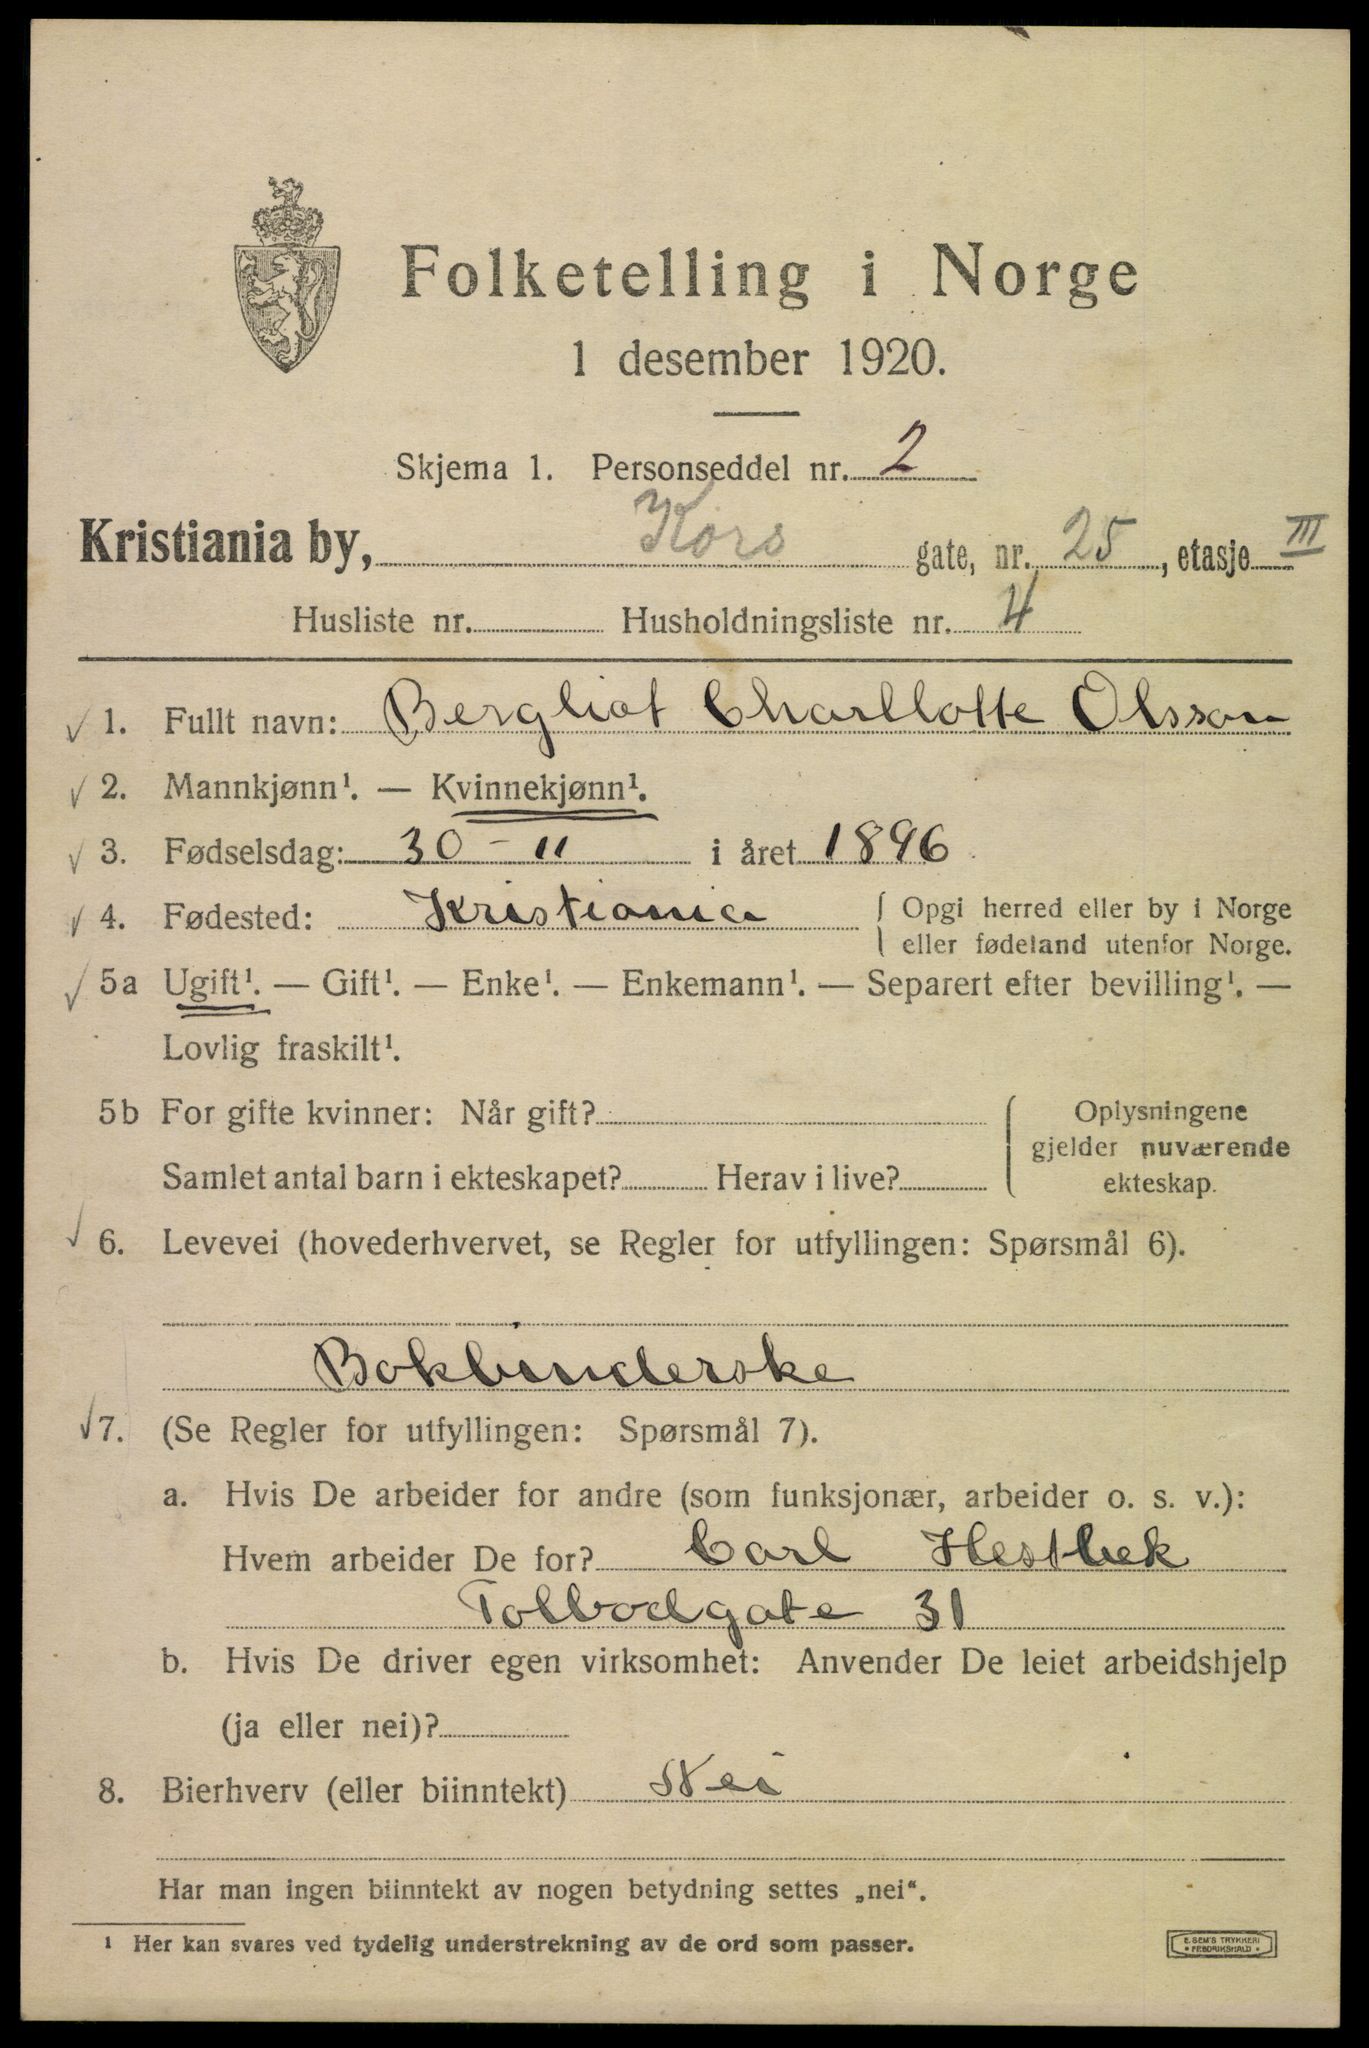 Folketelling i Norge
1 desember 1920.
Skjema 1. Personseddel nr. 2
Kristiania by, Kors gate, nr. 25, etasje III
Husliste nr. Husholdningsliste nr. 4
1. Fullt navn: Bergliot Charllotte Olsson
2. Mannkjønn¹. — Kvinnekjønn¹.
3. Fødselsdag: 30 - 11 i året 1896
4. Fødested: Kristiania { Opgi herred eller by i Norge
eller fødeland utenfor Norge.
5a Ugift¹. — Gift¹. — Enke¹. — Enkemann¹. — Separert efter bevilling¹. —
Lovlig fraskilt¹.
5b For gifte kvinner: Når gift? { Oplysningene
gjelder nuværende
Samlet antal barn i ekteskapet? Herav i live? ekteskap.
6. Levevei (hovederhvervet, se Regler for utfyllingen: Spørsmål 6).
Bokbinderske
7. (Se Regler for utfyllingen: Spørsmål 7).
a. Hvis De arbeider for andre (som funksjonær, arbeider o. s. v.):
Hvem arbeider De for? Carl Hestbek
Tolbodgate 31
b. Hvis De driver egen virksomhet: Anvender De leiet arbeidshjelp
(ja eller nei)?
8. Bierhverv (eller biinntekt) Nei
Har man ingen biinntekt av nogen betydning settes „nei“.
¹ Her kan svares ved tydelig understrekning av de ord som passer.
E. SEM'S TRYKKERI
* FREDRIKSHALD *